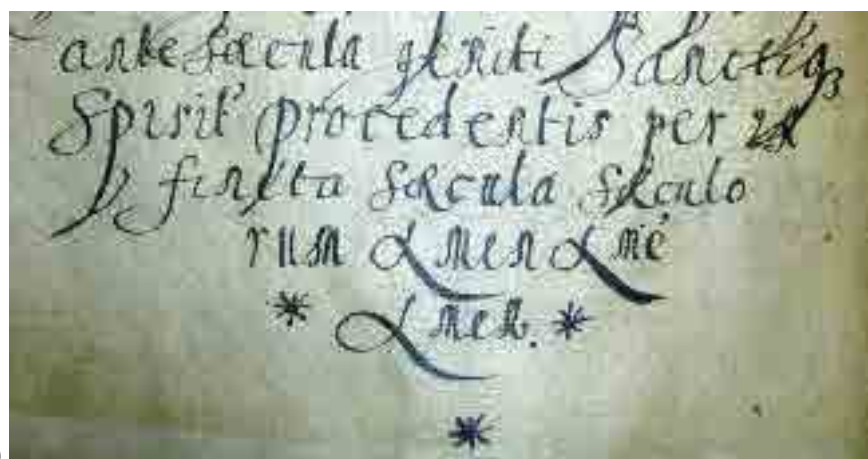 ante sæcula geniti Sanctiq3
Spirit' procedentis per in
finita sæcula sæculo
rum Amen Amē
* Amen. *
*